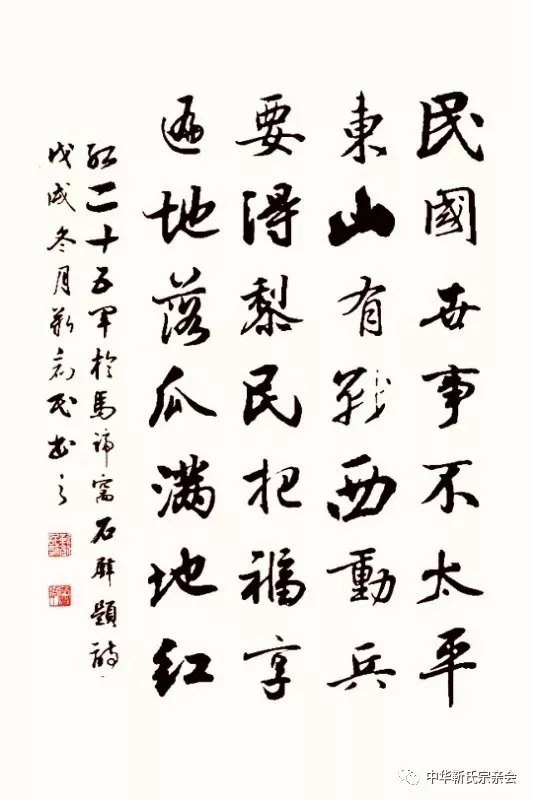 民國世事不太平
東山有戰西動兵
要得黎民把福享
遍地落瓜滿地紅
紅二十五軍於馬蹄窩石壁題詩
戊戌冬月靳
民書之
中华靳氏宗亲会